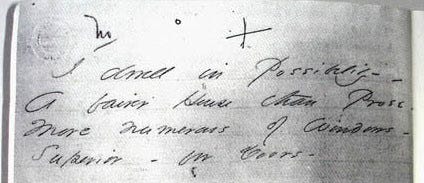 I dwell in Possibility -
A fairer House than Prose
More numerous of Windows -
Superior - for Doors -